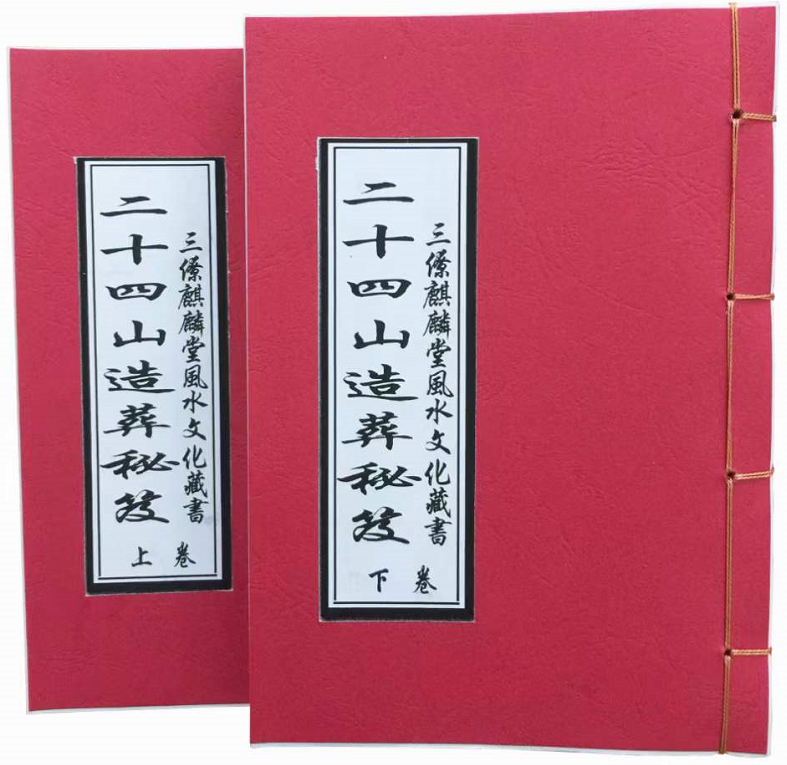 三僚麒麟堂風水文化藏書
二十四山造葬秘笈
上卷
三僚麒麟堂風水文化藏書
二十四山造葬秘笈
下卷